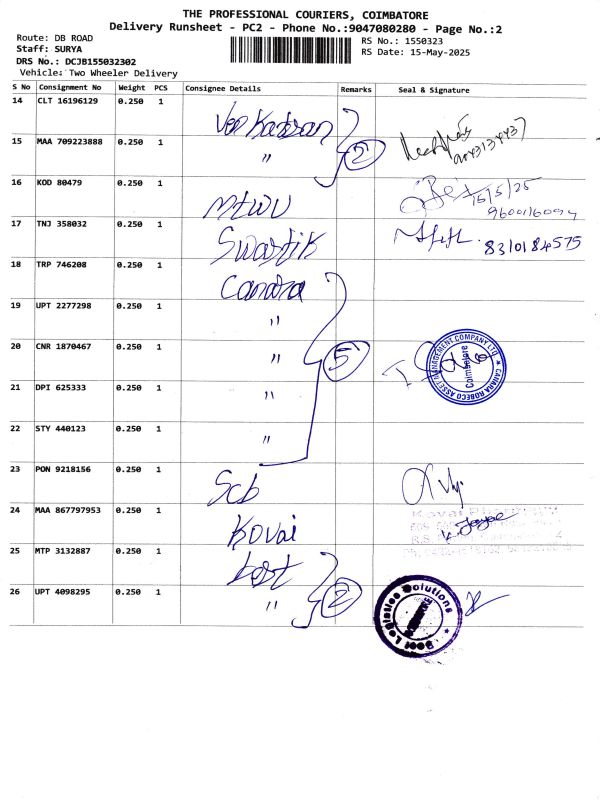 THE PROFESSIONAL COURIERS, COIMBATORE
Delivery Runsheet - PC2 - Phone No.:9047080280 - Page No.:2
Route: DB ROAD
Staff: SURYA
DRS No.: DCJB155032302
Vehicle: Two Wheeler Delivery
RS No.: 1550323
RS Date: 15-May-2025
S No Consignment No Weight PCS Consignee Details Remarks Seal & Signature
14 CLT 16196129 0.250 1
15 MAA 709223888 0.250 1 " 2
16 KOD 80479 0.250 1 MTWU 15/5/25
17 TNJ 358032 0.250 1 Swastik 8310184575
18 TRP 746208 0.250 1 Canara
19 UPT 2277298 0.250 1 "
20 CNR 1870467 0.250 1 " 5 CANARA ROBECO ASSET MANAGEMENT COMPANY LTD Coimbatore
21 DPI 625333 0.250 1 "
22 STY 440123 0.250 1 "
23 PON 9218156 0.250 1 Scb
24 MAA 867797953 0.250 1 Kovai Kovai
25 MTP 3132887 0.250 1 best
26 UPT 4098295 0.250 1 " 2 Best Logistics Solutions